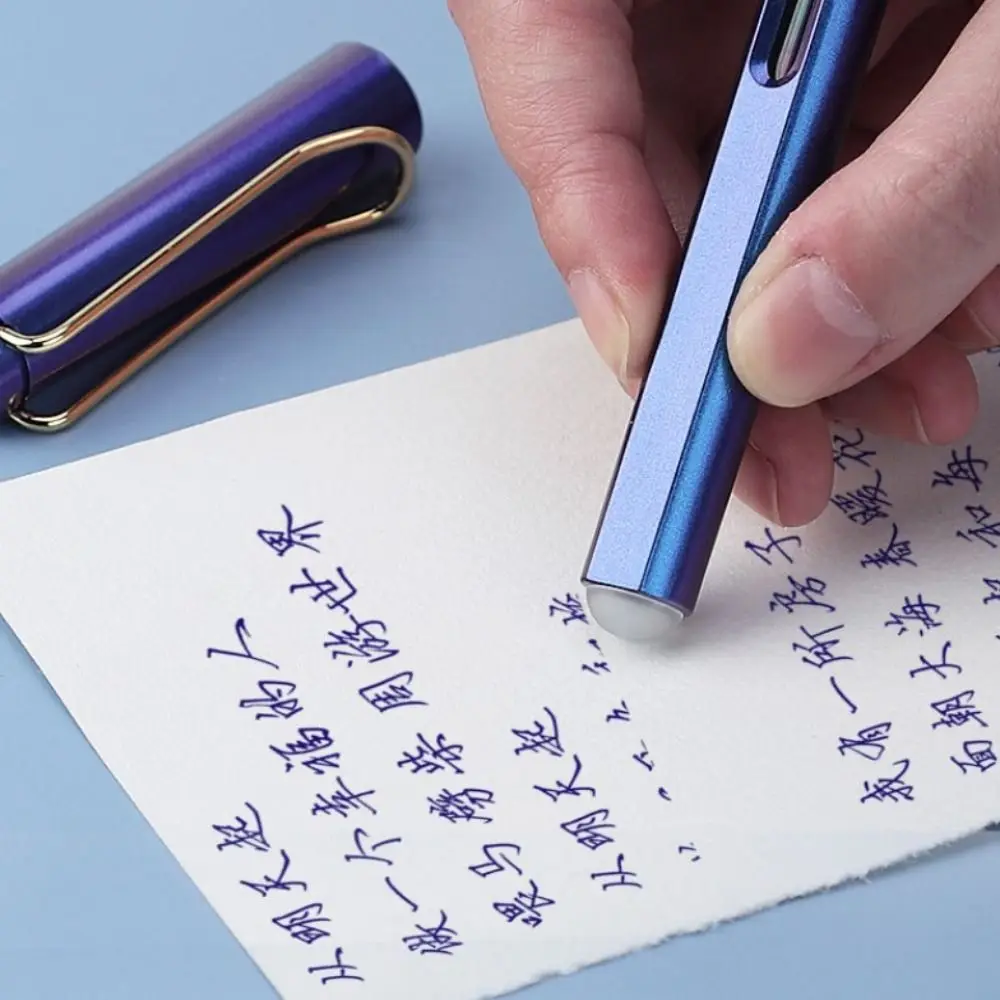 从明天起
做一个幸福的人
喂马劈柴 周游世界
从明天起
我有一所房子
面朝大海 春暖花
和每